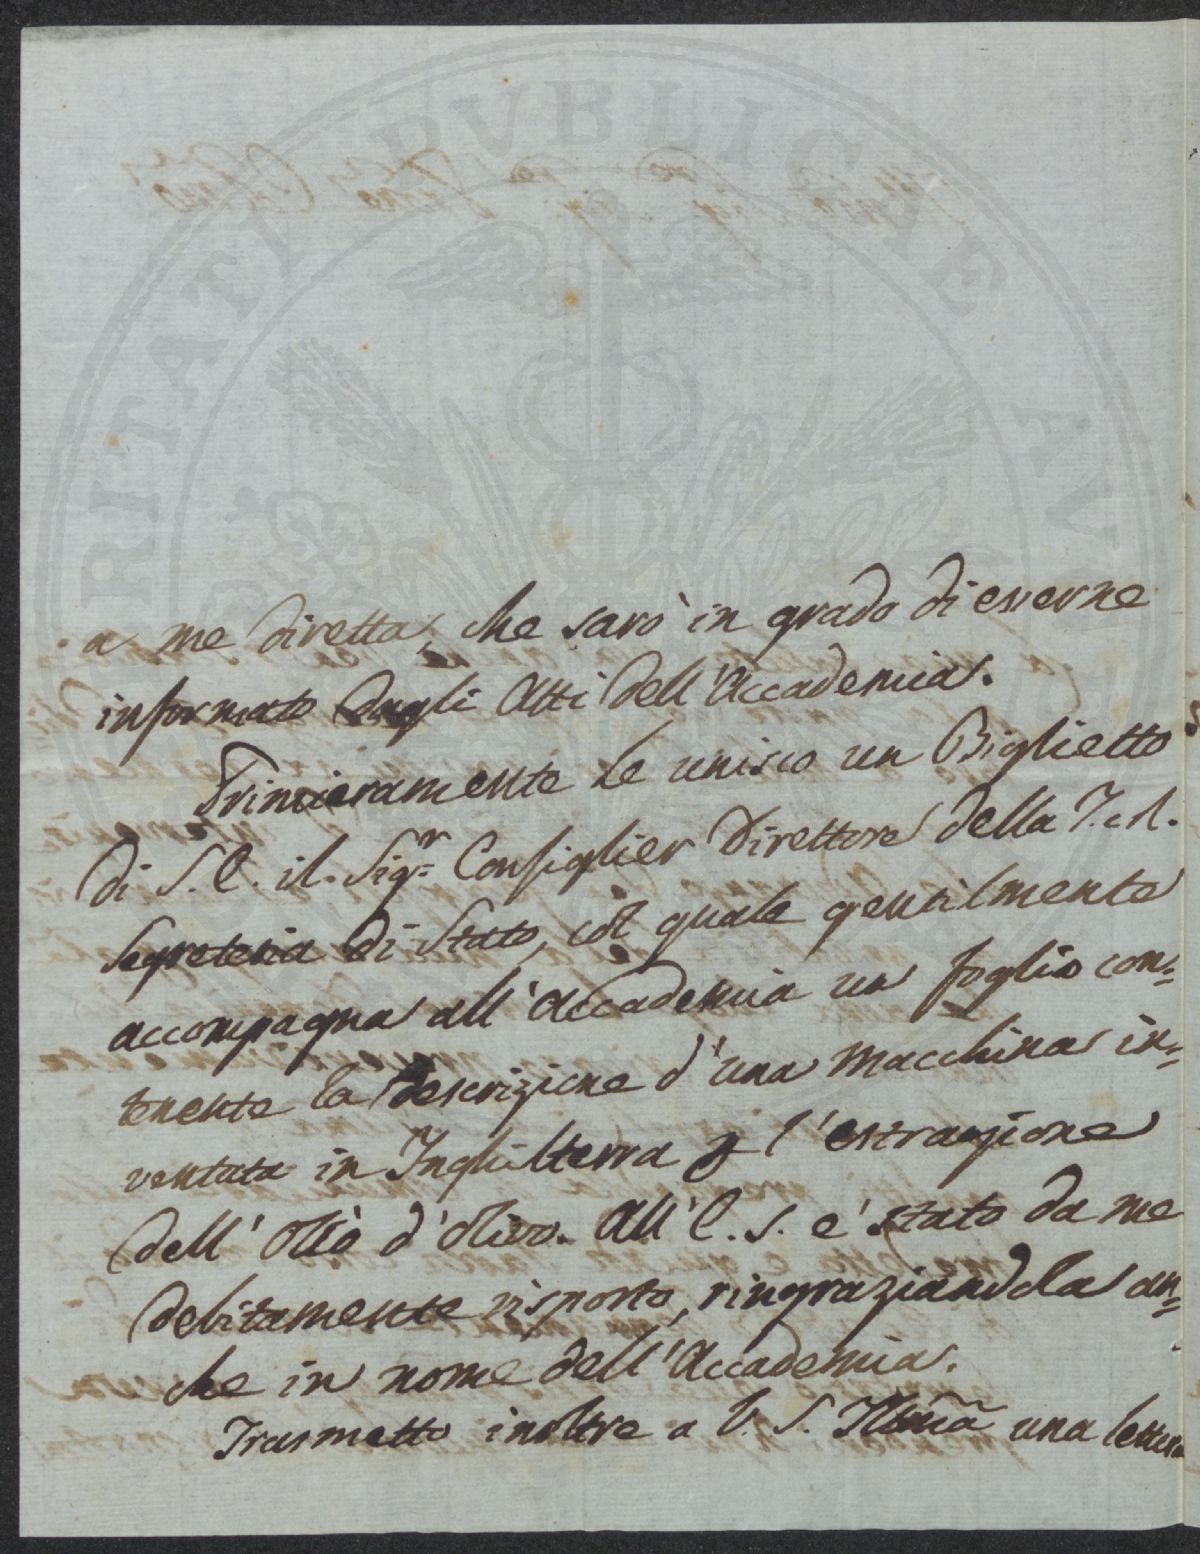 PVBLICAE
RITATI
AV
a me diretta, che sarò in grado di esserne
informato dagli Atti dell'Accademia.
Primieramente Le unisco un Biglietto
di S. E. il Sigr. Consiglier Direttore della I. e R.
Segreteria di Stato, col quale gentilmente
accompagna all'Accademia un foglio con=
tenente la descrizione d'una Macchina in=
ventata in Inghilterra p l'estrazione
dell'Olio d'olivo. All'E. S. e' stato da me
debitamente risposto, ringraziandola an=
che in nome dell'Accademia.
Trasmetto inoltre a V. S. Illma una lettera